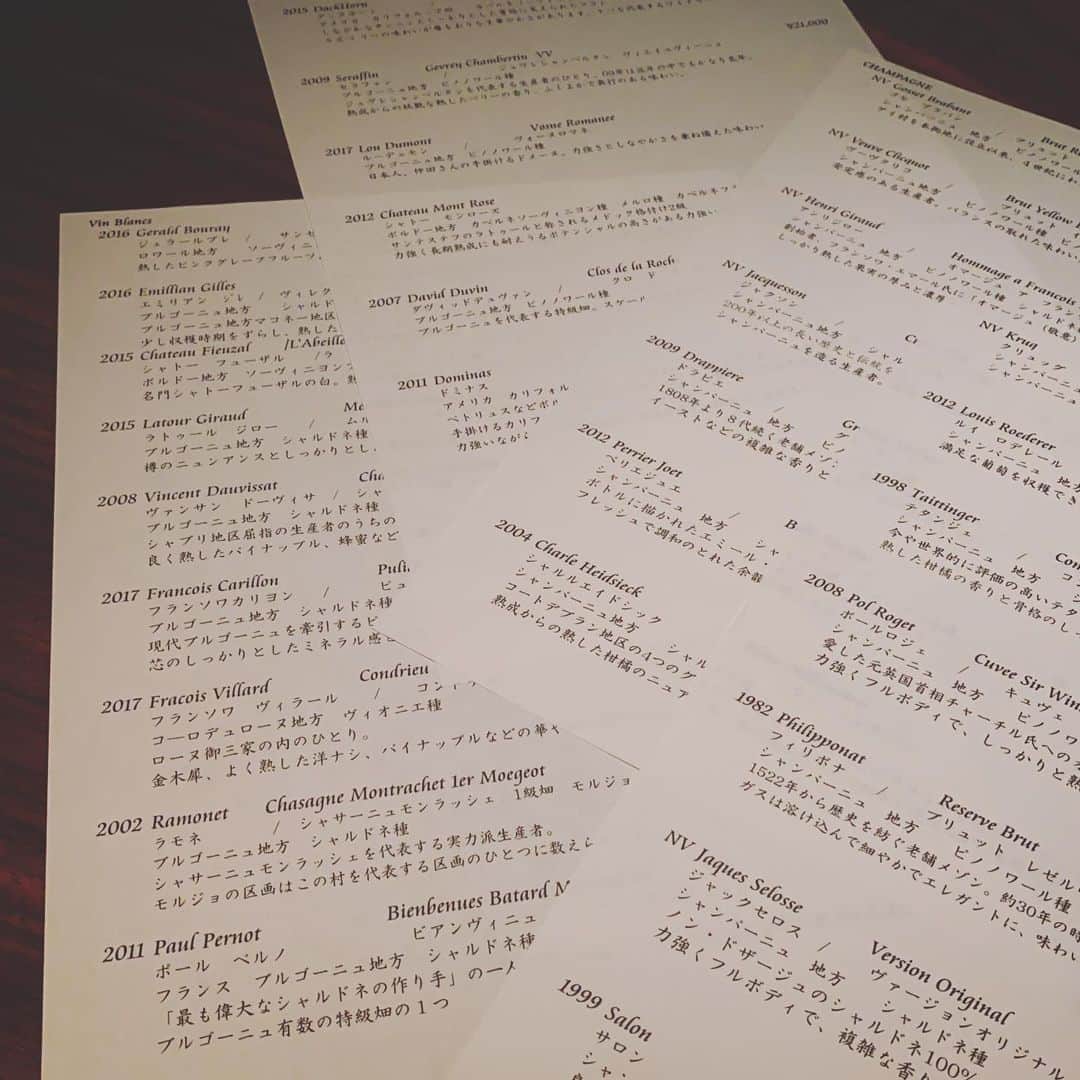 Vin Blancs
2016 Gerald Bouray
ジェラールブレ / サンセ
ロワール地方 ソーヴィニ
熟したピンクグレープフルーツ
2016 Emillian Gilles
エミリアン ジレ / ヴィレク
ブルゴーニュ地方 シャルド
ブルゴーニュ地方マコネー地区
少し収穫時期をずらし、熟した
2015 Chateau Fieuzal /L'Abeille
シャトー フューザル /ラ
ボルドー地方 ソーヴィニヨン
名門シャトーフューザルの白。熟
2015 Latour Giraud Me
ラトゥール ジロー / ムル
ブルゴーニュ地方 シャルドネ種
樽のニュンアンスとしっかりとし、
2008 Vincent Dauvissat Cha
ヴァンサン ドーヴィサ / シャ
ブルゴーニュ地方 シャルドネ種
シャブリ地区屈指の生産者のうちの
良く熟したパイナップル、蜂蜜など
2017 Francois Carillon Puli
フランソワカリヨン / ピュ
ブルゴーニュ地方 シャルドネ種
現代ブルゴーニュを牽引するピ
芯のしっかりとしたミネラル感と
2017 Fracois Villard Condrieu
フランソワ ヴィラール / コンドリ
コーロデュローヌ地方 ヴィオニエ種
ローヌ御三家の内のひとり。
金木犀、よく熟した洋ナシ、パイナップルなどの華や
2002 Ramonet Chasagne Montrachet 1er Moegeot
ラモネ / シャサーニュモンラッシェ 1級畑 モルジョ
ブルゴーニュ地方 シャルドネ種
シャサーニュモンラッシェを代表する実力派生産者。
モルジョの区画はこの村を代表する区画のひとつに数えら
2011 Paul Pernot Bienbenues Batard M
ポール ペルノ ビアンヴィニュ
フランス ブルゴーニュ地方 シャルドネ種
「最も偉大なシャルドネの作り手」の一人
ブルゴーニュ有数の特級畑の1つ
2015 DuckHorn
¥21,000
2009 Seraffin Gevrey Chambertin VV
セラファン / ジュヴレシャンベルタン ヴィエイユヴィーニュ
ブルゴーニュ地方 ピノノワール種
ジュヴレシャンベルタンを代表する生産者のひとり。09年は近年の中でもかなり良年。
熟成からの妖艶な熟したベリーの香り、ふくよかで奥行のある味わい。
2017 Lou Dumont Vosne Romanee
ルーデュモン / ヴォーヌロマネ
ブルゴーニュ地方 ピノノワール種
日本人、仲田さんの手掛けるドメーヌ。力強さとしなやかさを兼ね備えた味わい
2012 Chateau Mont Rose
シャトー モンローズ
ボルドー地方 カベルネソーヴィニヨン種 メルロ種 カベルネフ
サンテステフのラトゥールと称されるメドック格付け2級
力強く長期熟成にも耐えうるポテンシャルの高さがある力強い
2007 David Duvin Clos de la Roch
ダヴィッドデュヴァン / クロ ド
ブルゴーニュ地方 ピノノワール種
ブルゴーニュを代表する特級畑。スケー
2011 Dominas
ドミナス
アメリカ カリフォル
ペトリュスなどボル
手掛けるカリフ
力強いながら
CHAMPAGNE
NV Gosset Brabant Brut Re
ゴセ ブラバン / ブリュット
シャンパーニュ 地方 ピノノワール
アイ村を本拠地に設立以来、4世紀にわ
NV Veuve Clicquot Brut Yellow
ヴーヴクリコ / ブリュット
シャンパーニュ地方 ピノノワール種
安定感のある生産者。バランスの取れた味わい
NV Henri Giraud Hommage a Francois
アンリジロー / オマージュ ア フラン
シャンパーニュ 地方 ピノノワール種 シャルドネ
創始者、フランソワ・エマール氏に「オマージュ（敬意）
しっかり熟した果実の厚みと濃厚
NV Jacquesson Cu
ジャクソン /
シャンパーニュ地方 シャル
200年以上の長い歴史と伝統を
シャンパーニュを造る生産者。
2009 Drappiere Gr
ドラピエ / グ
シャンパーニュ 地方 ピノ
1808年より8代続く老舗メゾン
イーストなどの複雑な香りと
2012 Perrier Joet B
ペリエジュエ /
シャンパーニュ 地方 シャ
ボトルに描かれたエミール・
フレッシュで調和のとれた余韻
2004 Charle Heidsieck
シャルルエイドシック
シャンパーニュ地方 シャル
コートデブラン地区の4つのグ
熟成からの熟した柑橘のニュア
NV Kruq
クリュッグ
シャンパーニ
シャンパーニュ
2012 Louis Roederer
ルイ ロデレール
シャンパーニュ
満足な葡萄を収穫でき
1998 Taittinger Com
テタンジェ / コン
シャンパーニュ 地方 シ
今や世界的に評価の高いテタ
熟した柑橘の香りと骨格のし
2008 Pol Roget Cuvee Sir Win
ポールロジェ / キュヴェ
シャンパーニュ 地方 ピノノワ
愛した元英国首相チャーチル氏への
力強くフルボディで、しっかりと熟
1982 Philipponat Reserve Brut
フィリポナ / ブリュット レゼル
シャンパーニュ 地方 ピノノワール種
1522年から歴史を紡ぐ老舗メゾン。約30年の時
ガスは溶け込んで細やかでエレガントに、味わい
NV Jaques Selosse Version Original
ジャックセロス / ヴァージョンオリジナル
シャンパーニュ 地方 シャルドネ種
ノン・ドザージュのシャルドネ100%
力強くフルボディで、複雑な香り
1999 Salon
サロン